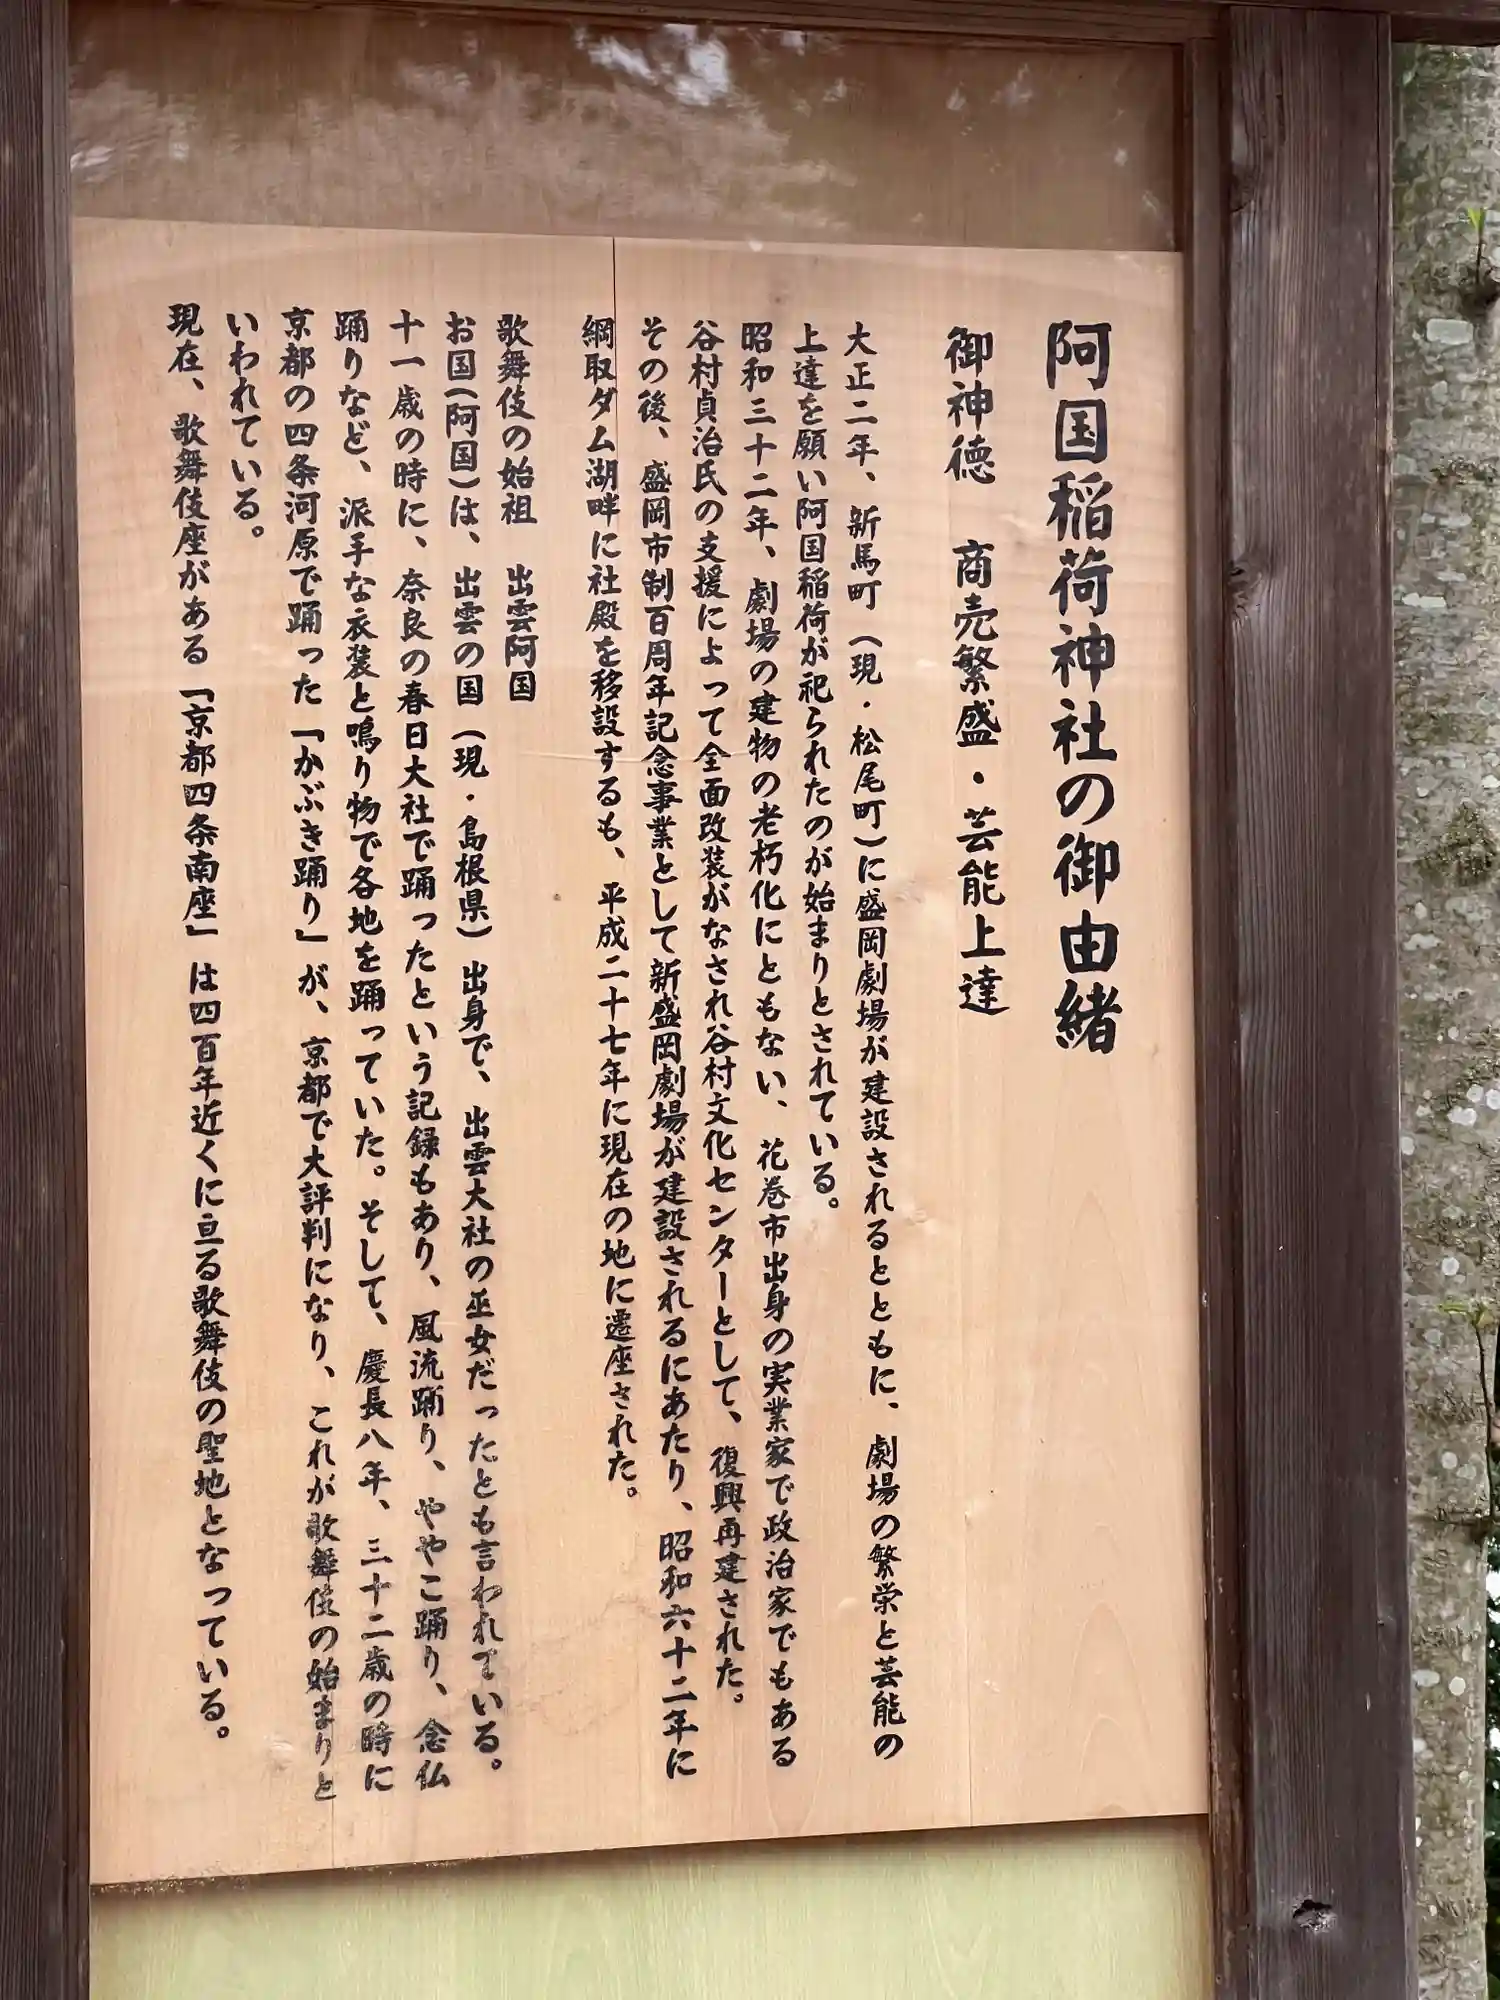 阿国稲荷神社の御由緒
御神徳 商売繁盛・芸能上達
大正二年、新馬町(現・松尾町)に盛岡劇場が建設されるとともに、劇場の繁栄と芸能の
上達を願い阿国稲荷が祀られたのが始まりとされている。
昭和三十二年、劇場の建物の老朽化にともない、花巻市出身の実業家で政治家でもある
谷村貞治氏の支援によって全面改装がなされ谷村文化センターとして、復興再建された。
その後、盛岡市制百周年記念事業として新盛岡劇場が建設されるにあたり、昭和六十二年に
綱取ダム湖畔に社殿を移設するも、平成二十七年に現在の地に遷座された。
歌舞伎の始祖 出雲阿国
お国(阿国)は、出雲の国(現・島根県)出身で、出雲大社の巫女だったとも言われている。
十一歳の時に、奈良の春日大社で踊ったという記録もあり、風流踊り、ややこ踊り、念仏
踊りなど、派手な衣装と鳴り物で各地を踊っていた。そして、慶長八年、三十二歳の時に
京都の四条河原で踊った「かぶき踊り」が、京都で大評判になり、これが歌舞伎の始まりと
いわれている。
現在、歌舞伎座がある「京都四条南座」は四百年近くに亘る歌舞伎の聖地となっている。